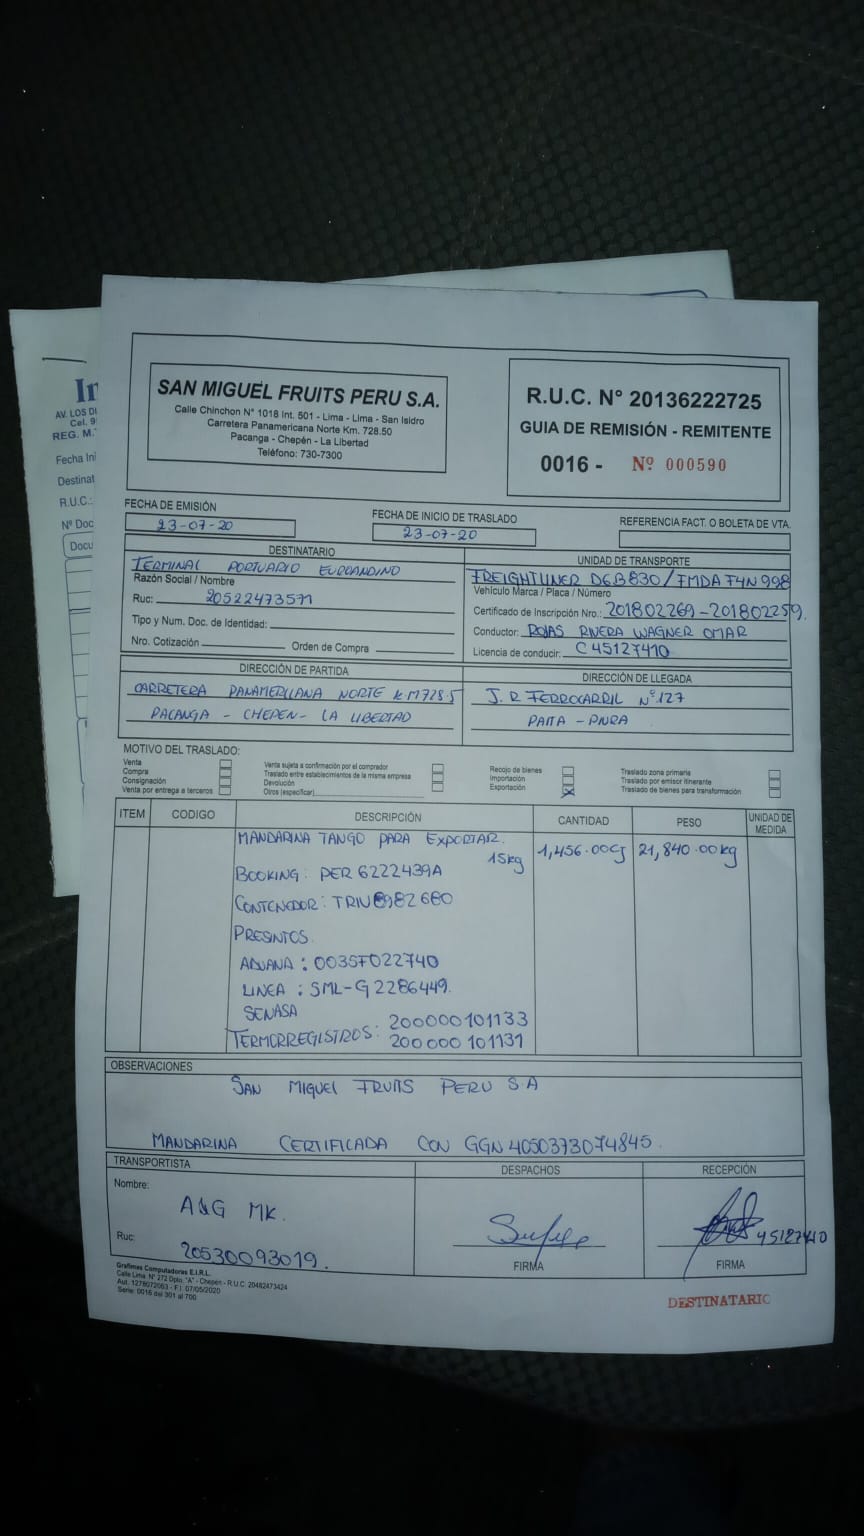 In
AV. LOS DI
Cel. 9
REG. M.
Fecha Ini
Destinat
R.U.C.:
Nº Doc
Docu
SAN MIGUEL FRUITS PERU S.A.
Calle Chinchon N° 1018 Int. 501 - Lima - Lima - San Isidro
Carretera Panamericana Norte Km. 728.50
Pacanga - Chepén - La Libertad
Teléfono: 730-7300
R.U.C. N° 20136222725
GUIA DE REMISIÓN - REMITENTE
0016 - Nº 000590
FECHA DE EMISIÓN
23-07-20
FECHA DE INICIO DE TRASLADO
23-07-20
REFERENCIA FACT. O BOLETA DE VTA.
DESTINATARIO
TERMINAL PORTUARIO EUROANDINO
Razón Social / Nombre
Ruc: 20522473571
Tipo y Num. Doc. de Identidad:
Nro. Cotización Orden de Compra
UNIDAD DE TRANSPORTE
FREIGHTLINER D6B830/FMDA F4N998
Vehículo Marca / Placa / Número
Certificado de Inscripción Nro.: 201802269-201802259.
Conductor: ROJAS RIVERA WAGNER OMAR
Licencia de conducir: C45127410
DIRECCIÓN DE PARTIDA
CARRETERA PANAMERICANA NORTE KM728.5
PACANGA - CHEPEN - LA LIBERTAD
DIRECCIÓN DE LLEGADA
J.R. FERROCARRIL Nº.127
PAITA - PIURA
MOTIVO DEL TRASLADO:
Venta
Compra
Consignación
Venta por entrega a terceros
Venta sujeta a confirmación por el comprador
Traslado entre establecimientos de la misma empresa
Devolución
Otros (especificar)
Recojo de bienes
Importación
Exportación X
Traslado zona primaria
Traslado por emisor itinerante
Traslado de bienes para transformación
ITEM CODIGO DESCRIPCIÓN CANTIDAD PESO UNIDAD DE MEDIDA
MANDARINA TANGO PARA EXPORTAR. 15kg 1,456.00CJ 21,840.00kg
BOOKING: PER 6222439A
CONTENEDOR: TRIU8982680
PRESINTOS.
ADUANA: 0035F022740
LINEA: SML-G2286449.
SENASA
TERMORREGISTROS: 200000101133
200000101131
OBSERVACIONES
SAN MIGUEL FRUITS PERU S A
MANDARINA CERTIFICADA CON GGN 4050373074845.
TRANSPORTISTA
Nombre:
A&G MK.
Ruc: 20530093019.
DESPACHOS
FIRMA
RECEPCIÓN
45127410
FIRMA
Grafimas Computadoras E.I.R.L.
Calle Lima N° 272 Dpto. "A" - Chepén - R.U.C. 20482473424
Aut. 1278072063 - F.I. 07/05/2020
Serie: 0016 del 301 al 700
DESTINATARIO